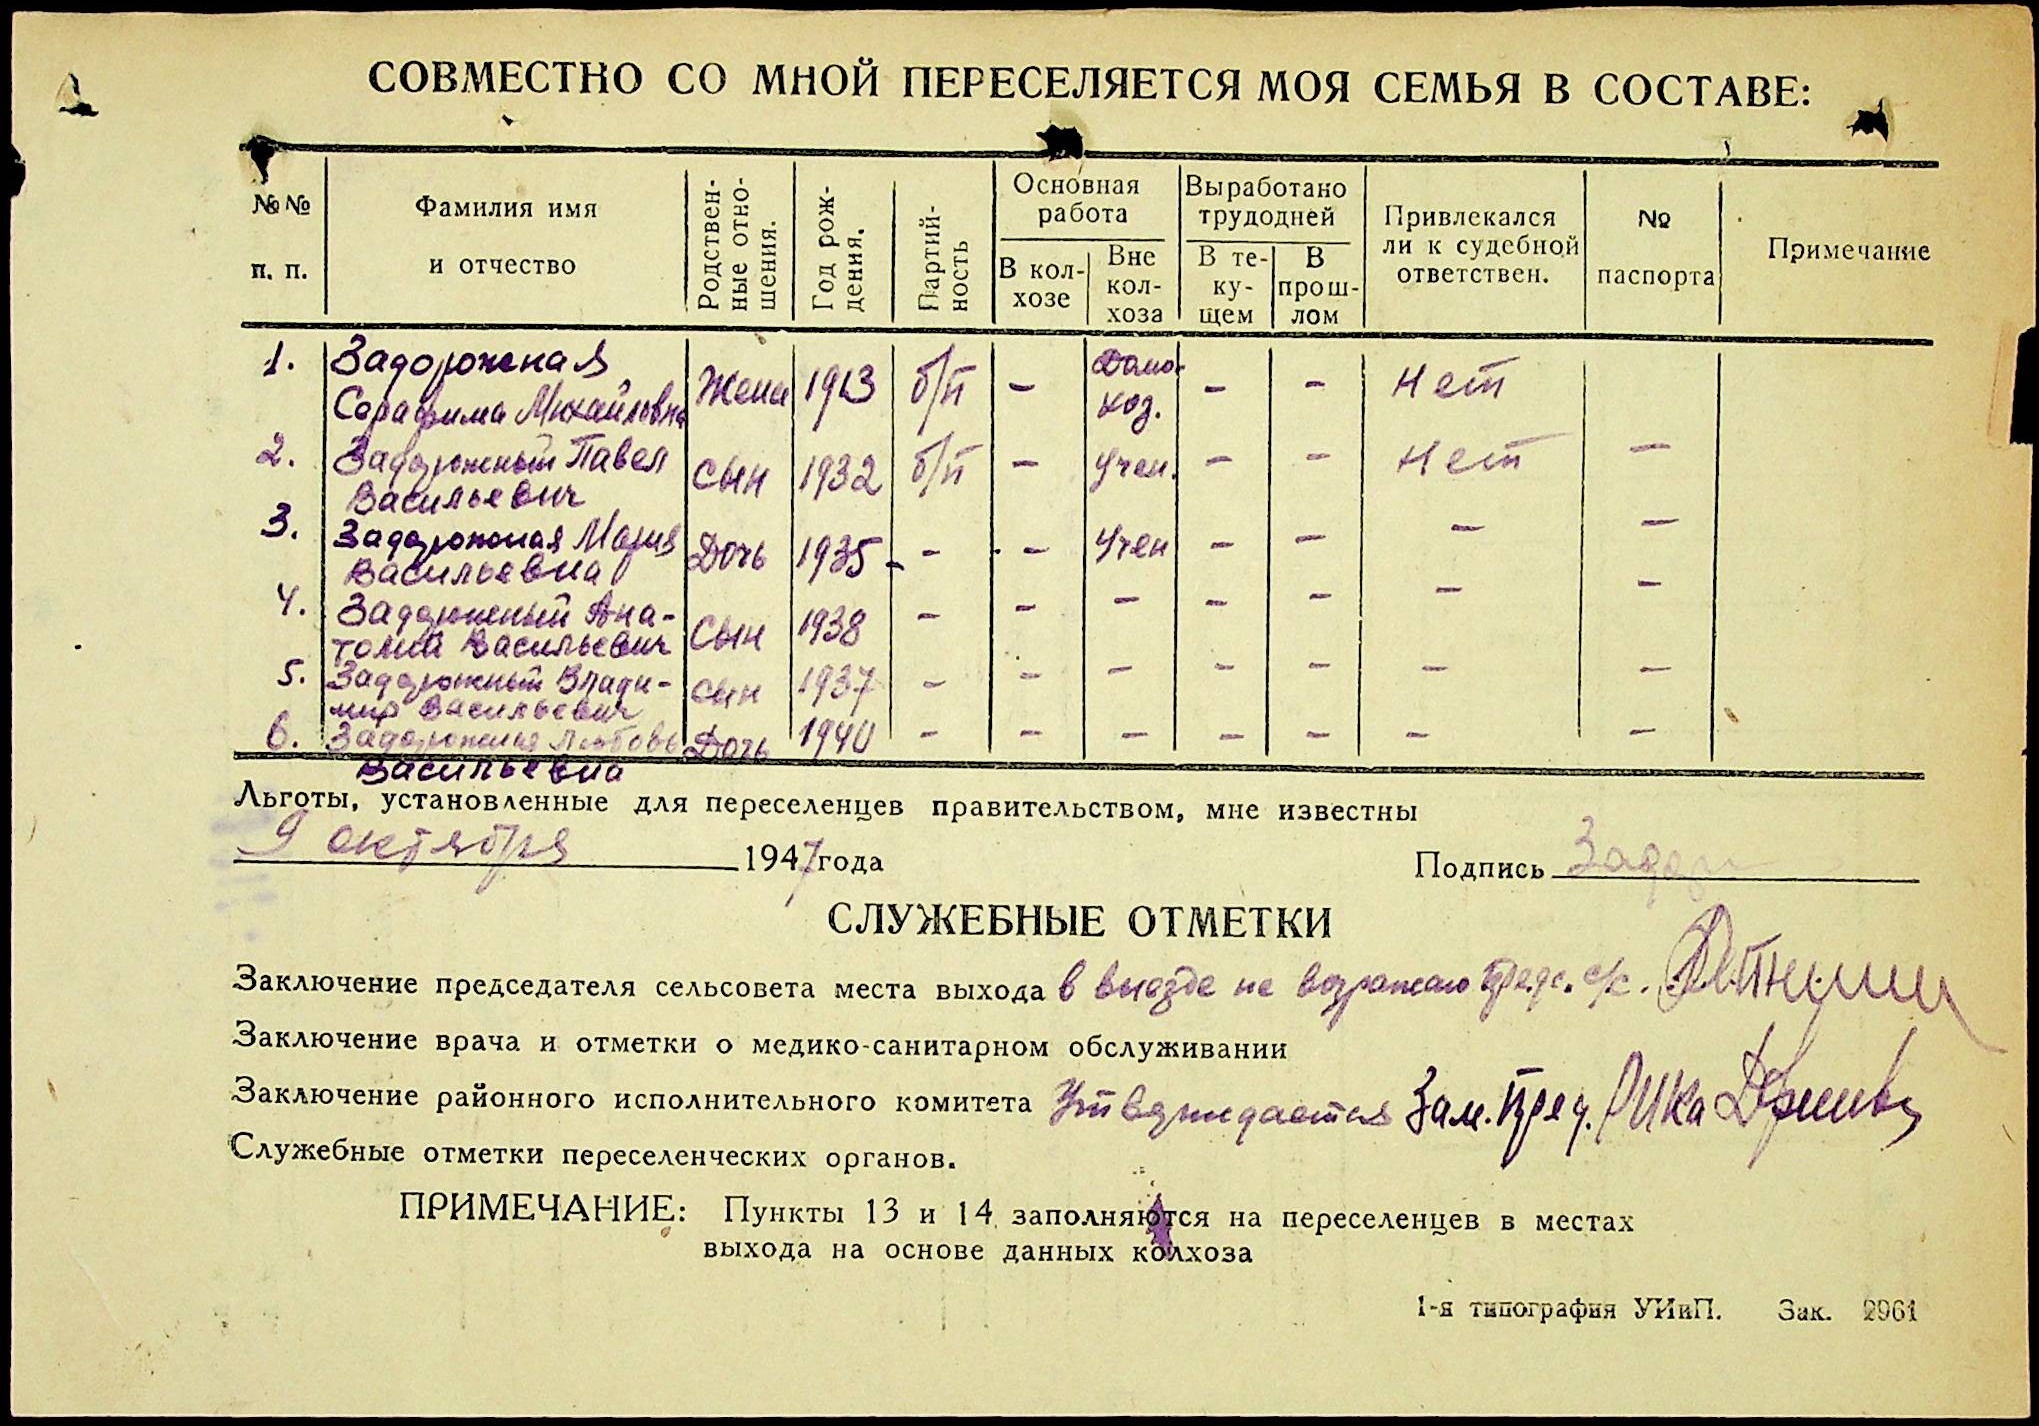 СОВМЕСТНО СО МНОЙ ПЕРЕСЕЛЯЕТСЯ МОЯ СЕМЬЯ В СОСТАВЕ:
№№ п. п. Фамилия имя и отчество Родствен-ные отно-шения. Год рож-дения. Партий-ность Основная работа В кол-хозе Вне кол-хоза Выработано трудодней В те-ку-щем В прош-лом Привлекался ли к судебной ответствен. № паспорта Примечание
1. Задорожная
Серафима Михайловна Жена 1913 б/п - Домо-хоз. - - Нет
2. Задорожный Павел
Васильевич сын 1932 б/п - Учен. - - Нет -
3. Задорожная Мария
Васильевна Дочь 1935 - - Учен - - - -
4. Задорожный Ана-
толий Васильевич Сын 1938 - - - - - - -
5. Задорожный Влади-
мир Васильевич сын 1937 - - - - - - -
6. Задорожная Любовь
Васильевна Дочь 1940 - - - - - - -
Льготы, установленные для переселенцев правительством, мне известны
9 октября 1947 года
Подпись Задор
СЛУЖЕБНЫЕ ОТМЕТКИ
Заключение председателя сельсовета места выхода в выезде не возражаю пред. с/с.
Заключение врача и отметки о медико-санитарном обслуживании
Заключение районного исполнительного комитета Утверждается Зам. пред. РИКа
Служебные отметки переселенческих органов.
ПРИМЕЧАНИЕ: Пункты 13 и 14 заполняются на переселенцев в местах
выхода на основе данных колхоза
1-я типография УИиП. Зак. 2961